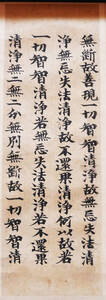 無斷故善現一切智智清淨故無忘失法清
淨無忘失法清淨故不還果清淨何以故若
一切智智清淨若無忘失法清淨若不還果
清淨無二無二分無別無斷故一切智智清